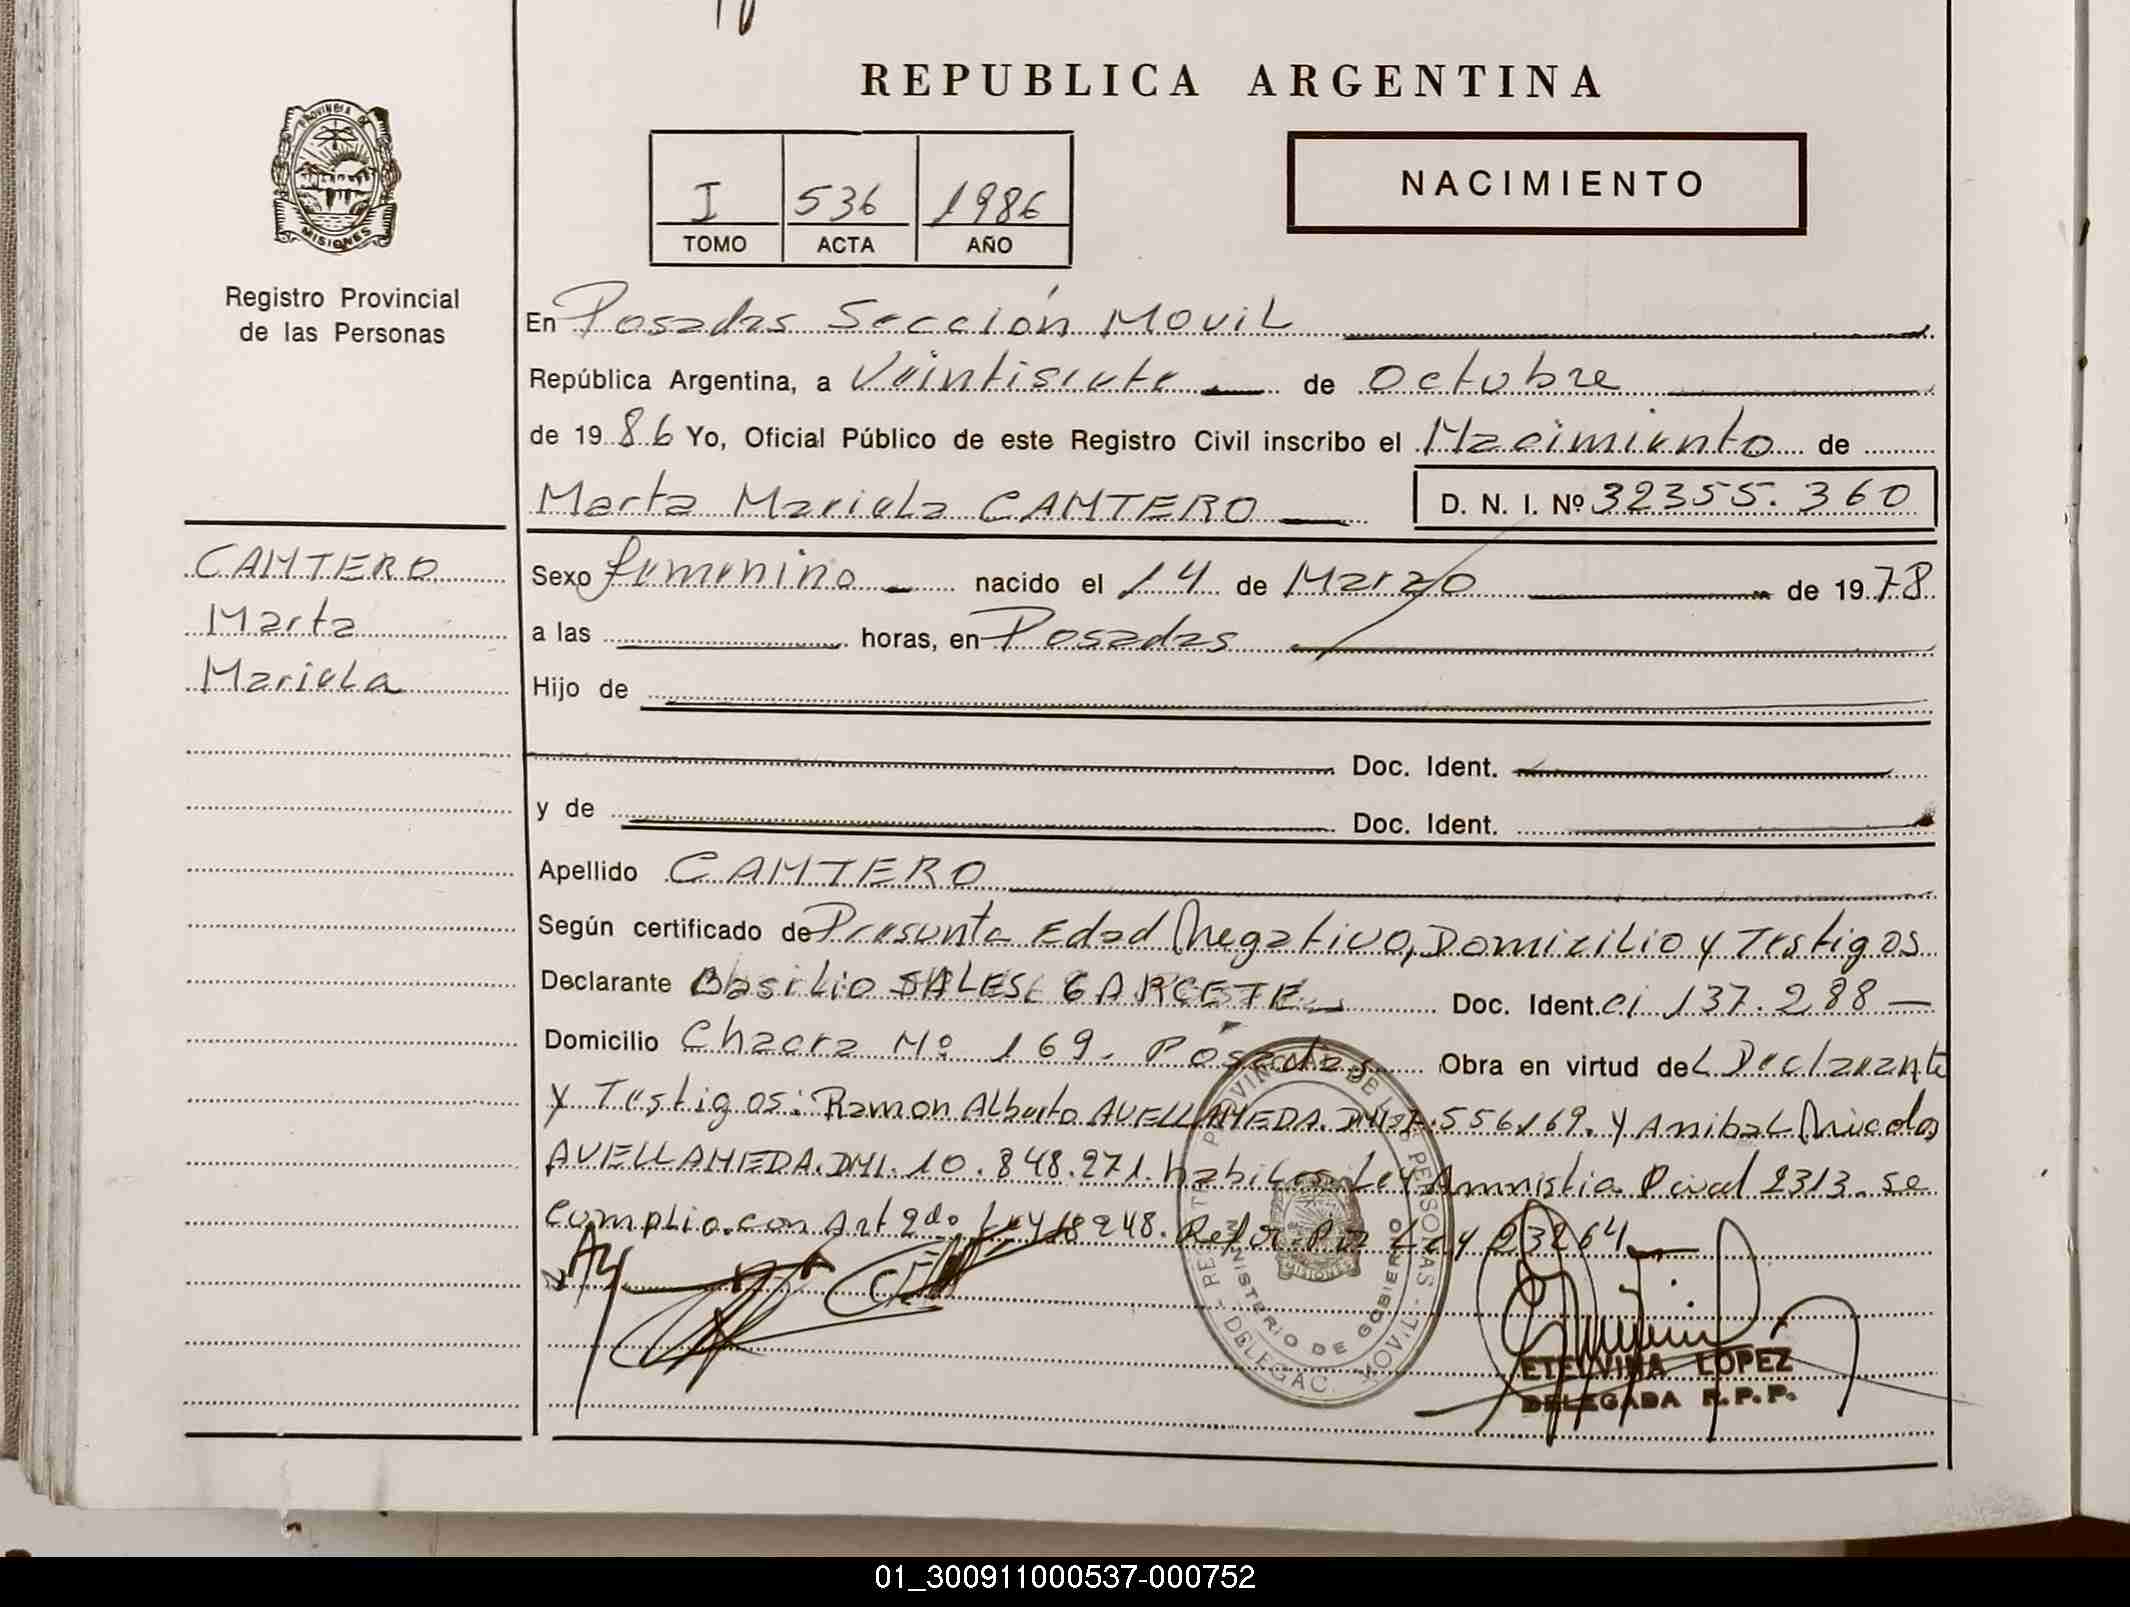 REPUBLICA ARGENTINA
PROVINCIA DE
MISIONES
Registro Provincial
de las Personas
I 536 1986
TOMO ACTA AÑO
NACIMIENTO
En Posadas Sección Movil
República Argentina, a Veintisiete de Octubre
de 1986 Yo, Oficial Público de este Registro Civil inscribo el Nacimiento de
Marta Mariela CANTERO D. N. I. Nº 32355.360
CANTERO
Marta
Mariela
Sexo femenino nacido el 14 de Marzo de 1978
a las horas, en Posadas
Hijo de
Doc. Ident.
y de Doc. Ident.
Apellido CANTERO
Según certificado de Presunta Edad Negativo, Domicilio y Testigos
Declarante Basilio SALES GARCETE Doc. Ident. ci 137.288
Domicilio Chacra Nº 169. Posadas Obra en virtud del Declarante
y Testigos: Ramon Alberto AVELLANEDA. DNI 7.556169. y Anibal Nicolas
AVELLANEDA. DNI. 10.848.271. habiles. Ley Amnistia Pcial 2313. se
cumplio con Art 2do Ley 18248. Refor. Por Ley 23264
MINISTERIO DE GOBIERNO
MISIONES
ETELVINA LOPEZ
DELEGADA R.P.P.
01_300911000537-000752